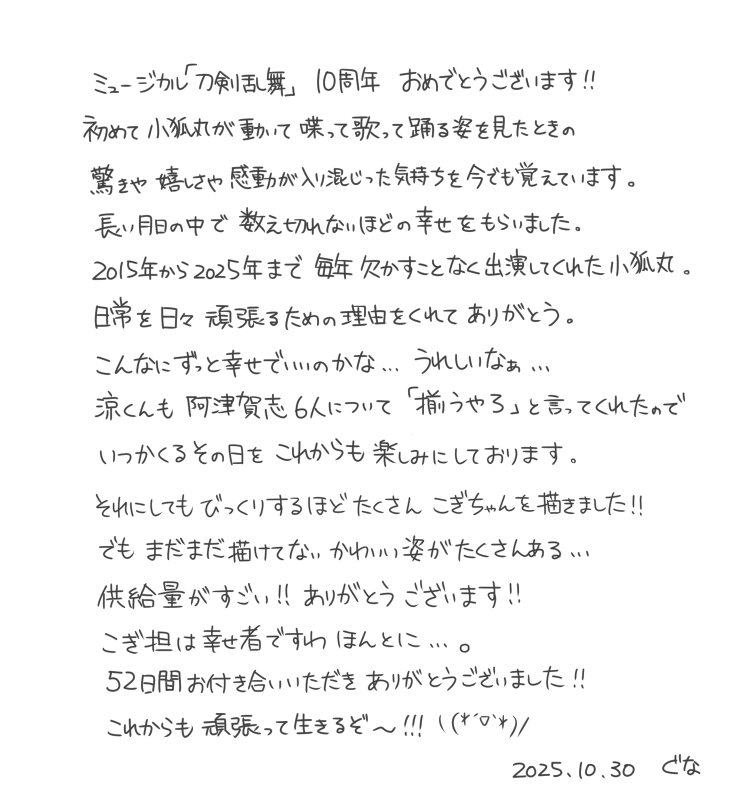 ミュージカル「刀剣乱舞」 10周年 おめでとうございます!!
初めて小狐丸が動いて喋って歌って踊る姿を見たときの
驚きや嬉しさや感動が入り混じった気持ちを今でも覚えています。
長い月日の中で数え切れないほどの幸せをもらいました。
2015年から2025年まで毎年欠かすことなく出演してくれた小狐丸。
日常を日々頑張るための理由をくれてありがとう。
こんなにずっと幸せでいいのかな… うれしいなぁ…
涼くんも阿津賀志6人について「揃うやろ」と言ってくれたので
いつかくるその日をこれからも楽しみにしております。
それにしてもびっくりするほどたくさんこぎちゃんを描きました!!
でもまだまだ描けてないかわいい姿がたくさんある…
供給量がすごい!! ありがとうございます!!
こぎ担は幸せ者ですわ ほんとに…。
52日間お付き合いいただきありがとうございました!!
これからも頑張って生きるぞ〜!!! \(*´▽`*)/
2025.10.30 ぐな